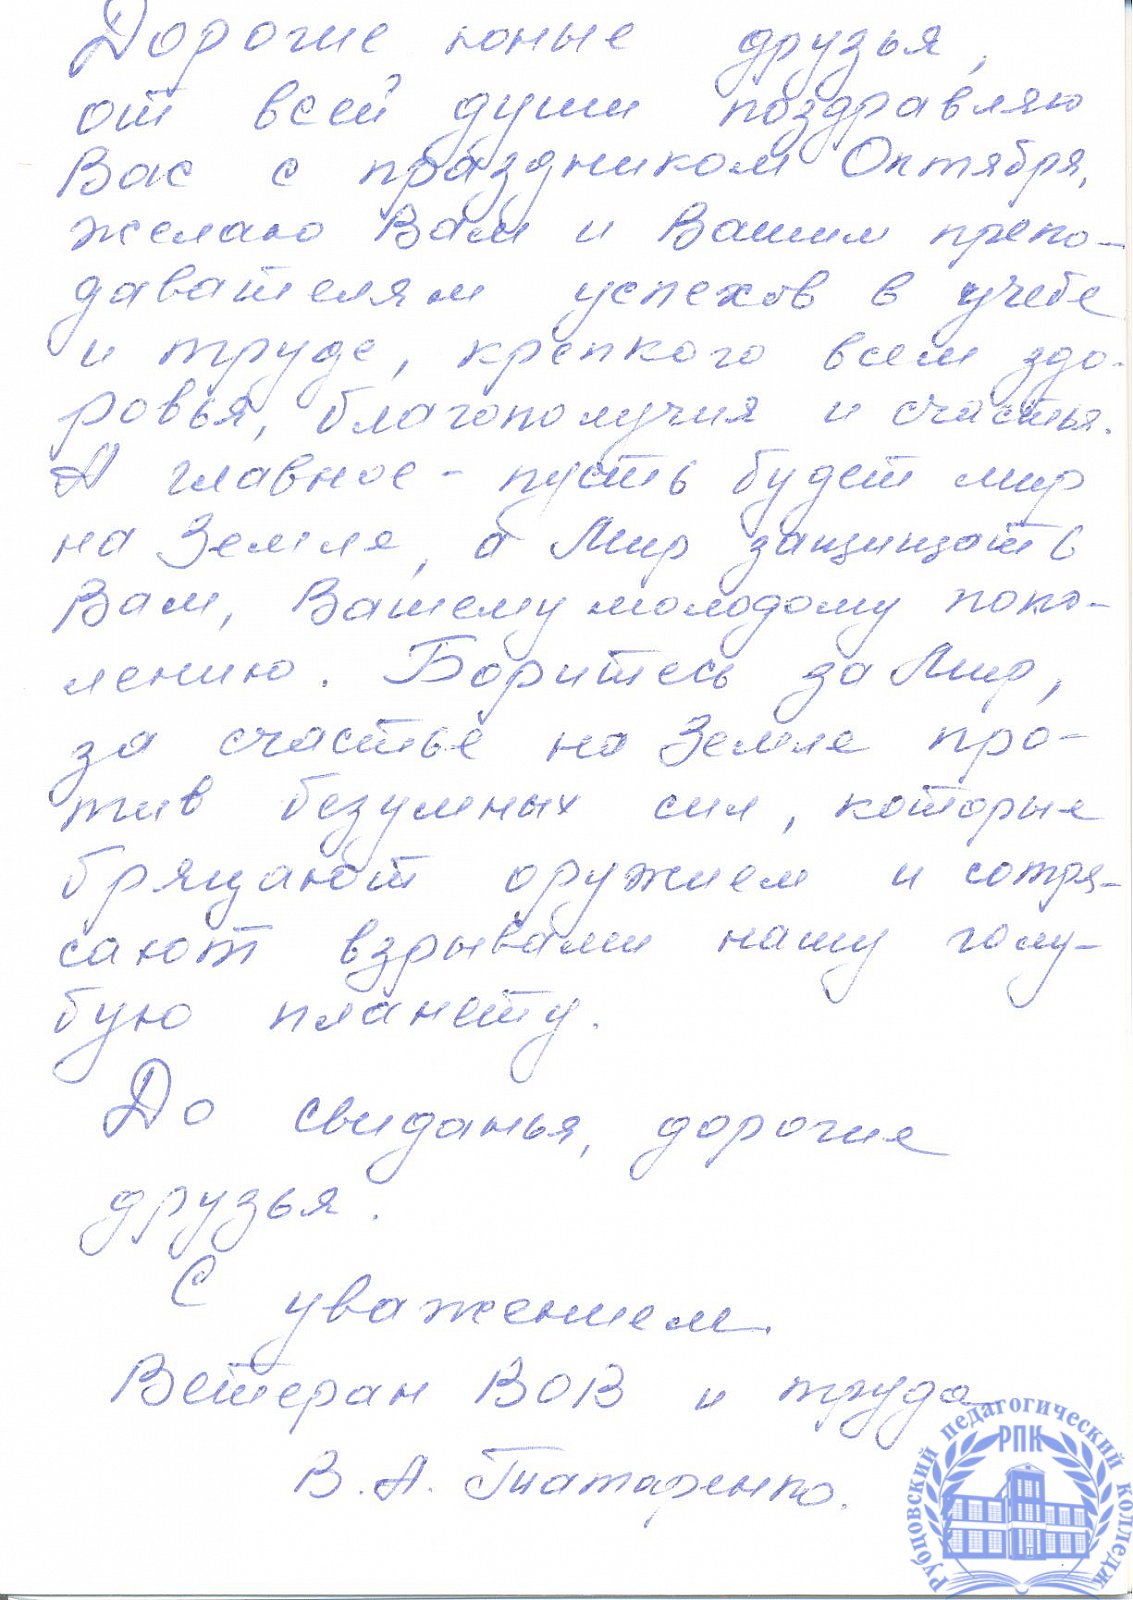 Дорогие юные друзья,
от всей души поздравляю
Вас с праздником Октября,
желаю Вам и Вашим препо-
давателям успехов в учебе
и труде, крепкого всем здо-
ровья, благополучия и счастья.
А главное - пусть будет мир
на Земле, а Мир защищать
Вам, Вашему молодому поко-
лению. Боритесь за Мир,
за счастье на Земле про-
тив безумных сил, которые
бряцают оружием и сотря-
сают взрывами нашу голу-
бую планету.
До свиданья, дорогие
друзья.
С уважением
Ветеран ВОВ и труда
В. А. Татаренко.
Рубцовский педагогический колледж
РПК